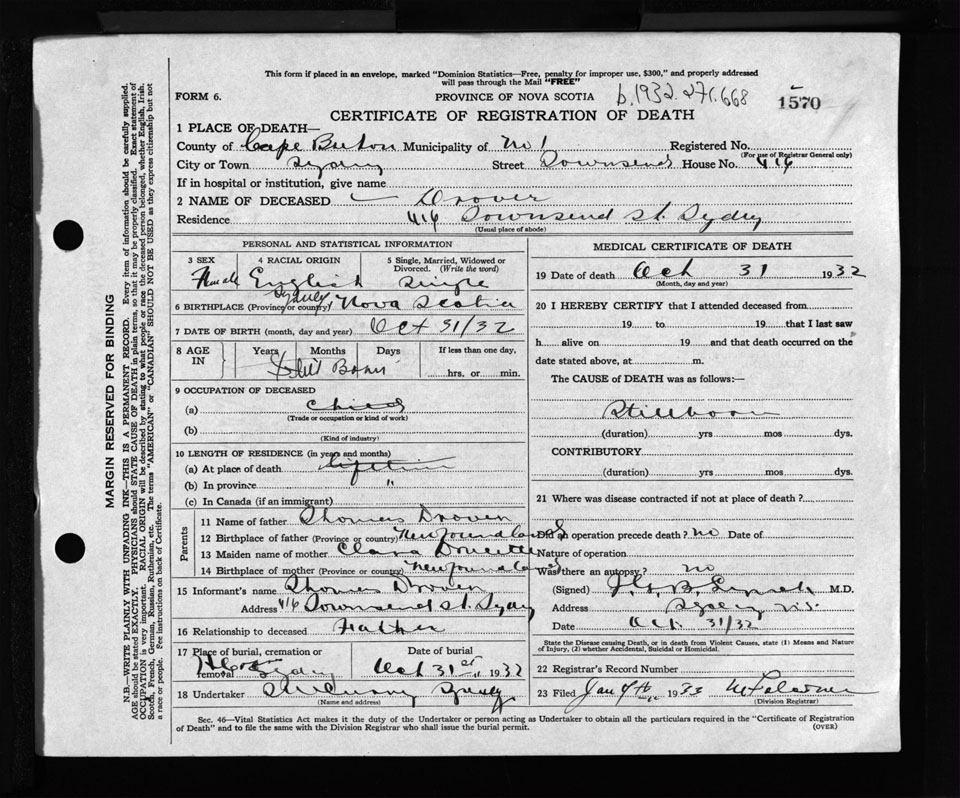 This form if placed in an envelope, marked "Dominion Statistics—Free, penalty for improper use, $300," and properly addressed
will pass through the Mail "FREE"
FORM 6. PROVINCE OF NOVA SCOTIA b.1932.271.668 1570
CERTIFICATE OF REGISTRATION OF DEATH
1 PLACE OF DEATH—
County of Cape Breton Municipality of No 1 Registered No.
(For use of Registrar General only)
City or Town Sydney Street Townsend House No. 416
If in hospital or institution, give name
2 NAME OF DECEASED — Drover
Residence 416 Townsend St. Sydney
(Usual place of abode)
PERSONAL AND STATISTICAL INFORMATION
3 SEX 4 RACIAL ORIGIN 5 Single, Married, Widowed or Divorced. (Write the word)
Female English Single
6 BIRTHPLACE (Province or country) Sydney Nova Scotia
7 DATE OF BIRTH (month, day and year) Oct 31/32
8 AGE IN Years Months Days If less than one day,
Still Born hrs. or min.
9 OCCUPATION OF DECEASED
(a) Child
(Trade or occupation or kind of work)
(b)
(Kind of industry)
10 LENGTH OF RESIDENCE (in years and months)
(a) At place of death lifetime
(b) In province "
(c) In Canada (if an immigrant)
Parents
11 Name of father Thomas Drover
12 Birthplace of father (Province or country) Newfoundland
13 Maiden name of mother Clara
14 Birthplace of mother (Province or country) Newfoundland
15 Informant's name Thomas Drover
Address 416 Townsend St. Sydney
16 Relationship to deceased Father
17 Place of burial, cremation or removal Date of burial
Sydney Oct 31st, 1932
18 Undertaker Sydney
(Name and address)
MEDICAL CERTIFICATE OF DEATH
19 Date of death Oct 31 1932
(Month, day and year)
20 I HEREBY CERTIFY that I attended deceased from
19 to 19 that I last saw
h alive on 19 and that death occurred on the
date stated above, at m.
The CAUSE of DEATH was as follows:—
Stillborn
(duration) yrs mos dys.
CONTRIBUTORY
(duration) yrs mos dys.
21 Where was disease contracted if not at place of death?
Did an operation precede death? no Date of
Nature of operation
Was there an autopsy? no
(Signed) M.D.
Address Sydney N.S.
Date Oct. 31/32
State the Disease causing Death, or in death from Violent Causes, state (1) Means and Nature
of Injury, (2) whether Accidental, Suicidal or Homicidal.
22 Registrar's Record Number
23 Filed Jan 4th 1933
(Division Registrar)
Sec. 46—Vital Statistics Act makes it the duty of the Undertaker or person acting as Undertaker to obtain all the particulars required in the "Certificate of Registration
of Death" and to file the same with the Division Registrar who shall issue the burial permit. (OVER)
MARGIN RESERVED FOR BINDING
N.B.—WRITE PLAINLY WITH UNFADING INK—THIS IS A PERMANENT RECORD. Every item of information should be carefully supplied.
AGE should be stated EXACTLY. PHYSICIANS should STATE CAUSE OF DEATH in plain terms, so that it may be properly classified. Exact statement of
OCCUPATION is very important. RACIAL ORIGIN will be described by stating to what people or race the deceased person belonged, whether English, Irish,
Scotch, French, German, Russian, Ruthenian, etc. The terms "AMERICAN" or "CANADIAN" SHOULD NOT BE USED as they express citizenship but not
a race or people. See instructions on back of Certificate.